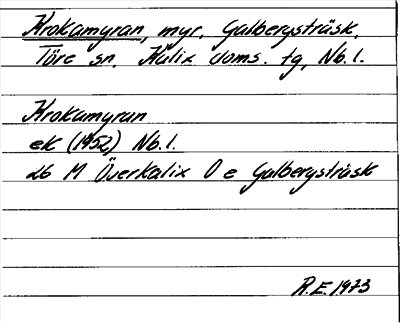 Krokamyran, myr. Galbergsträsk,
Töre sn. Kalix doms. tg, Nb.l.
Krokamyran
ek (1952) Nb.l.
26 M Överkalix O e Galbergsträsk
R.E. 1973